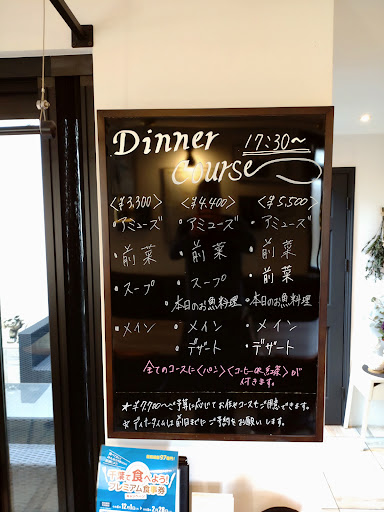 Dinner 17:30〜
Course
<¥3,300> <¥4,400> <¥5,500>
・アミューズ ・アミューズ ・アミューズ
・前菜 ・前菜 ・前菜
・前菜
・スープ ・スープ
・本日のお魚料理 ・本日のお魚料理
・メイン ・メイン ・メイン
・デザート ・デザート
全てのコースに<パン><コーヒーor紅茶>が
付きます。
★¥7,700〜ご予算に応じてお任せコースもご用意できます。
※ディナータイムは前日までにご予約をお願いします。
千葉で食べよう!
プレミアム食事券